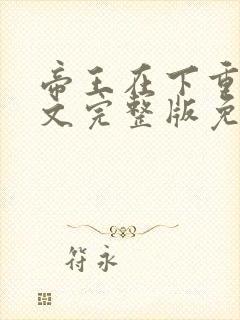 帝王在下重
文完整版免
符永